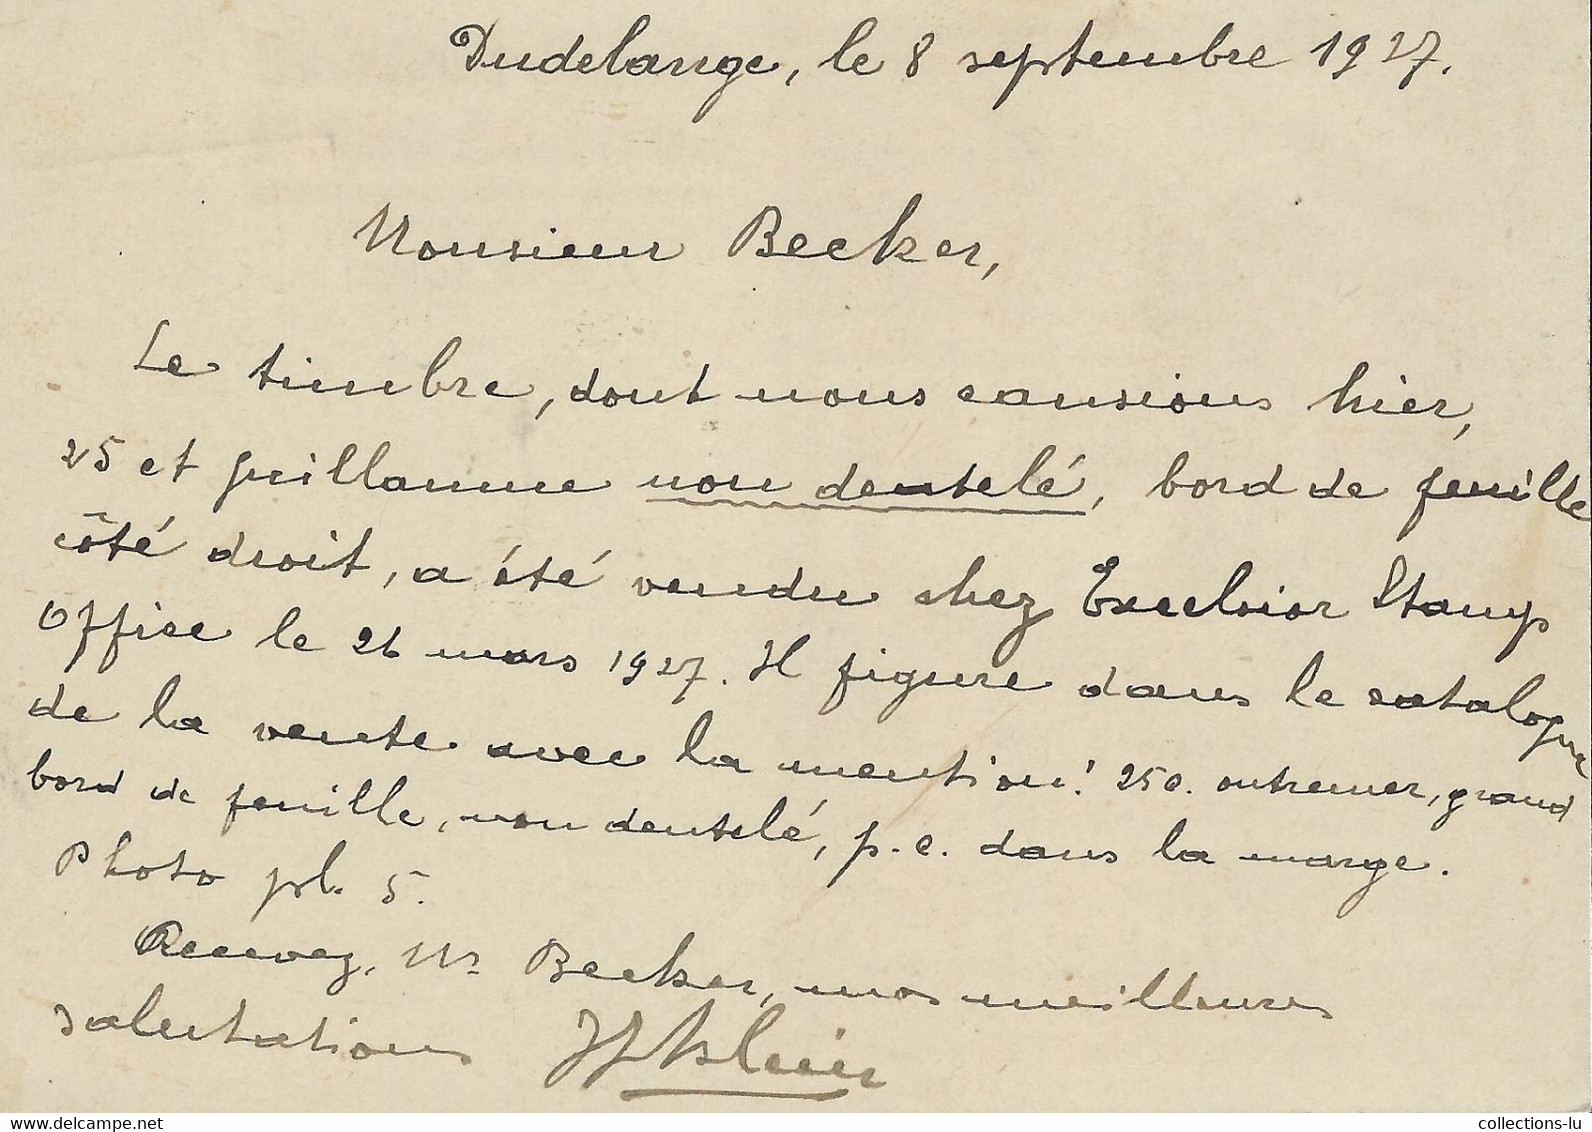 Dudelange, le 8 septembre 1927.
Monsieur Becker,
Le timbre, dont nous causions hier,
25 ct Guillaume non dentelé, bord de feuille
côté droit, a été vendu chez Excelsior Stamp
Office le 26 mars 1927. Il figure dans le catalogue
de la vente avec la mention: 25c. outremer, grand
bord de feuille, non dentelé, p.c. dans la marge.
Photo pl. 5.
Recevez, Mr Becker, mes meilleures
salutations Klein
collections-lu